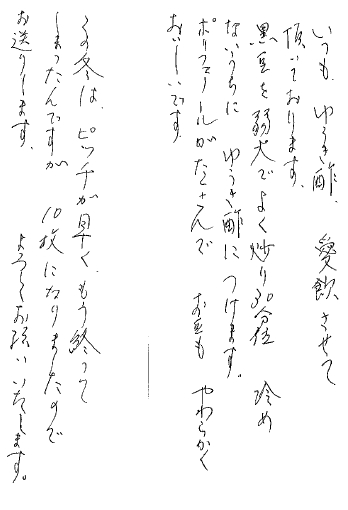 いつも、ゆうき酢、愛飲させて
頂いております。
黒豆を弱火でよく炒り30分位 冷め
ないうちに ゆうき酢につけます。
ポリフェノールがたくさんで お豆も やわらかく
おいしいです
この冬は、ピッチが早く、もう終って
しまったんですが 10枚になりましたので
お送りします。 よろしくお願いいたします。